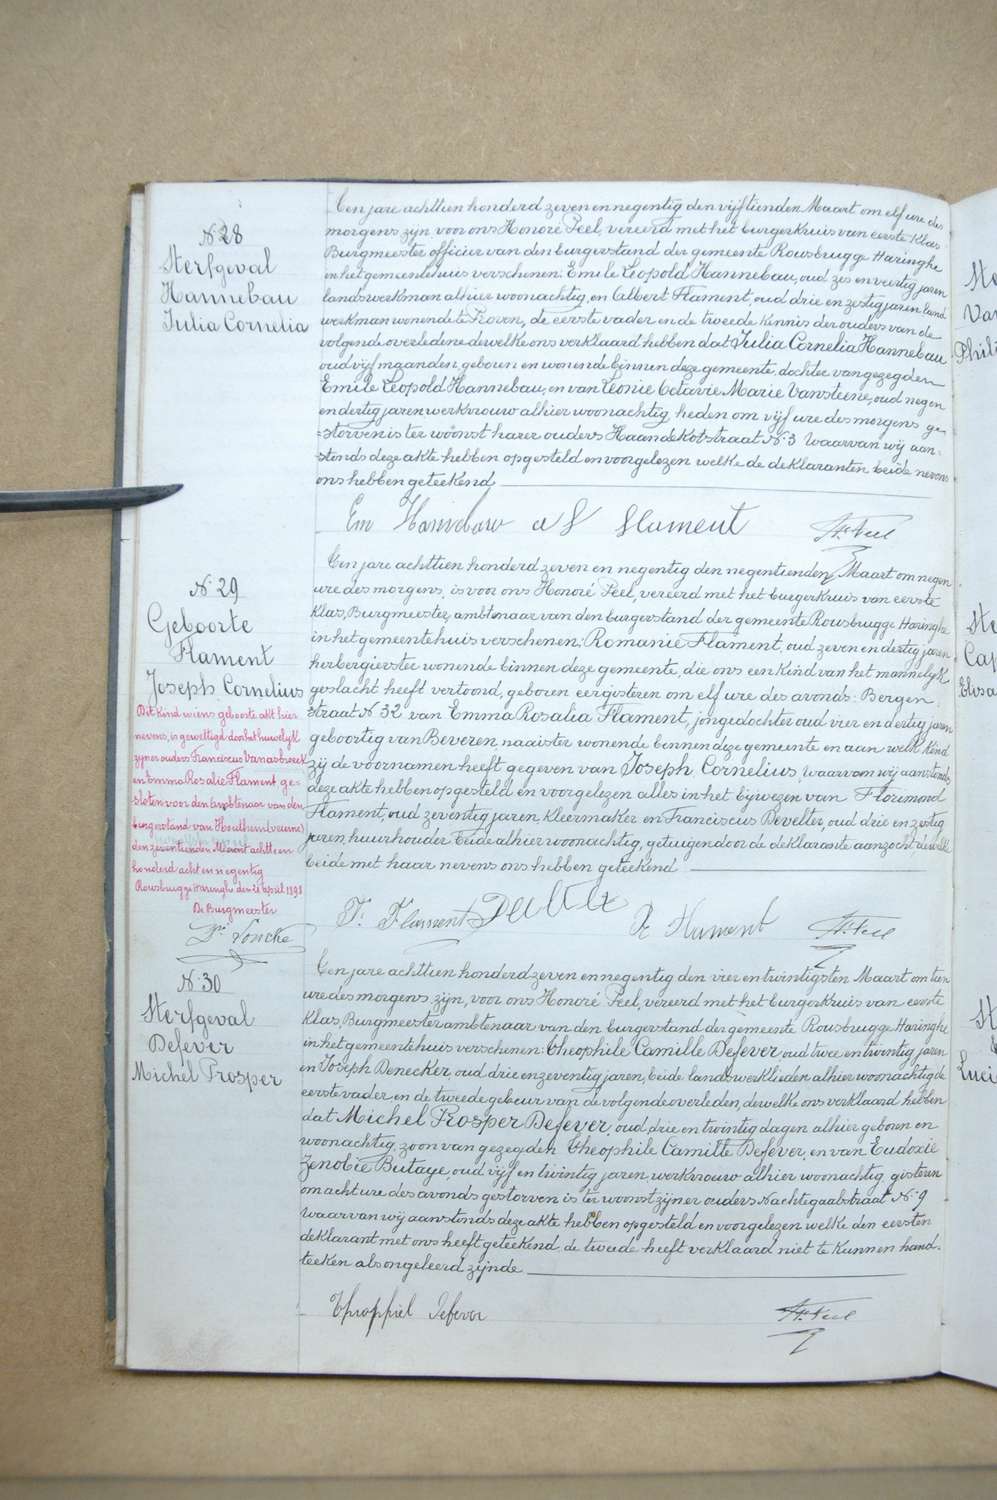 N. 28
Sterfgeval
Hannebau
Julia Cornelia
Ten jare achttien honderd zeven en negentig den vijftienden Maart om elf ure des
morgens zyn voor ons Honoré Peel, vereerd met het burgerkruis van eerste klas
Burgmeester officier van den burgerstand der gemeente Rousbrugge Haringhe
in het gemeentehuis verschenen: Emile Leopold Hannebau, oud zes en veertig jaren
landswerkman alhier woonachtig, en Albert Flament, oud drie en zestig jaren land
werkman wonende te Proven, de eerste vader en de tweede kennis der ouders van de
volgende overledene dewelke ons verklaard hebben dat Julia Cornelia Hannebau
oud vijf maanden, geboren en wonende binnen deze gemeente, dochter van gezegden
Emile Leopold Hannebau, en van Leonie Octavie Marie Vansteene, oud negen
en dertig jaren werkvrouw alhier woonachtig, heden om vijf ure des morgens ge=
=storven is ter woonst harer ouders Haandekotstraat N. 3 Waarvan wij aan=
stonds deze akte hebben opgesteld en voorgelezen welke de deklaranten beide nevens
ons hebben geteekend
Em Hannebau al flament Hre Peel
N. 29
Geboorte
Flament
Joseph Cornelius
Dit kind wiens geboorte akt hier
nevens, is gewettigd door het huwelijk
zijner ouders Franciscus Vanasbroeck
en Emma Rosalie Flament ge=
sloten voor den ambtenaar van den
burgerstand van Houthem (veurne)
den zeventienden Maart achttien
honderd acht en negentig
Rousbrugge Haringhe den 21 april 1898
De Burgmeester
Voncke
Ten jare achttien honderd zeven en negentig den negentienden Maart om negen
ure des morgens, is voor ons Honoré Peel, vereerd met het burgerkruis van eerste
klas, Burgmeester, ambtenaar van den burgerstand der gemeente Rousbrugge Haringhe
in het gemeentehuis verschenen: Romanie Flament, oud zeven en dertig jaren
herbergierster wonende binnen deze gemeente, die ons een kind van het mannelyk
geslacht heeft vertoond, geboren eergisteren om elf ure des avonds: Bergen
straat N. 32 van Emma Rosalia Flament, jongedochter oud vier en dertig jaren
geboortig van Beveren, naaister wonende binnen deze gemeente en aan welk kind
zij de voornamen heeft gegeven van Joseph Cornelius, waarvan wij aanstonds
deze akte hebben opgesteld en voorgelezen alles in het bijwezen van Florimond
Flament, oud zeventig jaren, kleermaker en Franciscus Develter, oud drie en zestig
jaren, huurhouder beide alhier woonachtig, getuigen door de deklarante aanzocht dewelke
beide met haar nevens ons hebben geteekend
F. Flament R Flament Hre Peel
N. 30
Sterfgeval
Defever
Michel Prosper
Ten jare achttien honderd zeven en negentig den vier en twintigsten Maart om tien
ure des morgens, zijn, voor ons Honoré Peel, vereerd met het burgerkruis van eerste
klas, Burgmeester ambtenaar van den burgerstand der gemeente Rousbrugge Haringhe
in het gemeentehuis verschenen: Theophile Camille Defever, oud twee en twintig jaren
en Joseph Denecker, oud drie en zeventig jaren, beide landswerklieden alhier woonachtig de
eerste vader en de tweede gebuur van de volgende overleden, dewelke ons verklaard hebben
dat Michel Prosper Defever, oud, drie en twintig dagen alhier geboren en
woonachtig, zoon van gezegden Theophile Camille Defever, en van Eudoxie
Zenobie Butaye, oud vijf en twintig jaren, werkvrouw alhier woonachtig gisteren
om acht ure des avonds gestorven is ter woonst zijner ouders Nachtegaalstraat N. 9
Waarvan wij aanstonds deze akte hebben opgesteld en voorgelezen welke den eersten
deklarant met ons heeft geteekend, de tweede heeft verklaard niet te kunnen hand=
teeken als ongeleerd zijnde
Defever Hre Peel